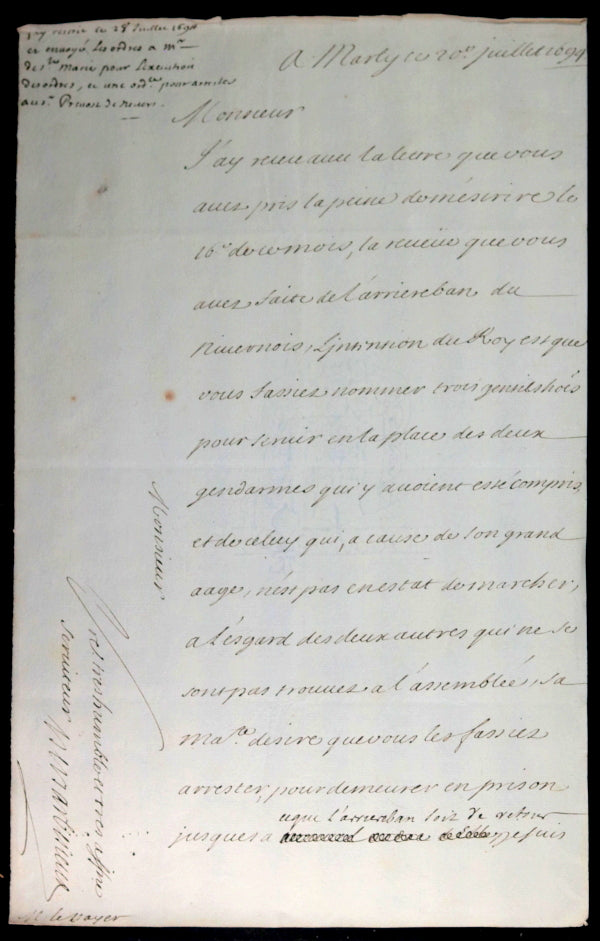 receue le 28 Juillet 1694
et envoyé les ordres a mr
des tes Marie pour l'execution
des ordres, et une ordce pour
au sr. Prevost de nevers
A Marly le 20e. juillet 1694
Monsieur
J'ay receu avec la lettre que vous
avez pris la peine de m'escrire le
16e. de ce mois, la reveüe que vous
avez faite de l'arriereban du
Nivernois, L'jntention du Roy est que
vous fassiez nommer trois gentilshoes
pour servir en la place des deux
gendarmes qui y avoient esté compris,
et de celuy qui, a cause de son grand
aage, n'est pas en estat de marcher,
a L'esgard des deux autres qui ne se
sont pas trouvez a l'assemblée, sa
Mate. desire que vous les fassiez
arrester, pour demeurer en prison
ce que l'arriereban soit de retour
jusques a Je suis
Monsieur
Vre tres humble et tres affné
serviteur
M. le vayer